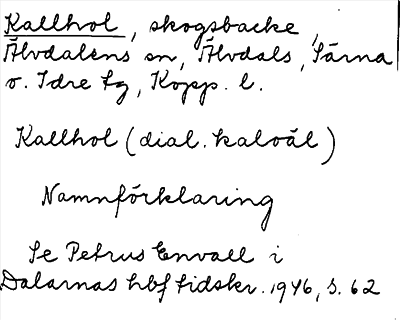 Kallhol, skogsbacke,
Älvdalens sn, Älvdals, Särna
o. Idre tg, Kopp. l.
Kallhol (dial. kaloäl)
Namnförklaring
Se Petrus Envall i
Dalarnas hbf tidskr. 1946, s. 62